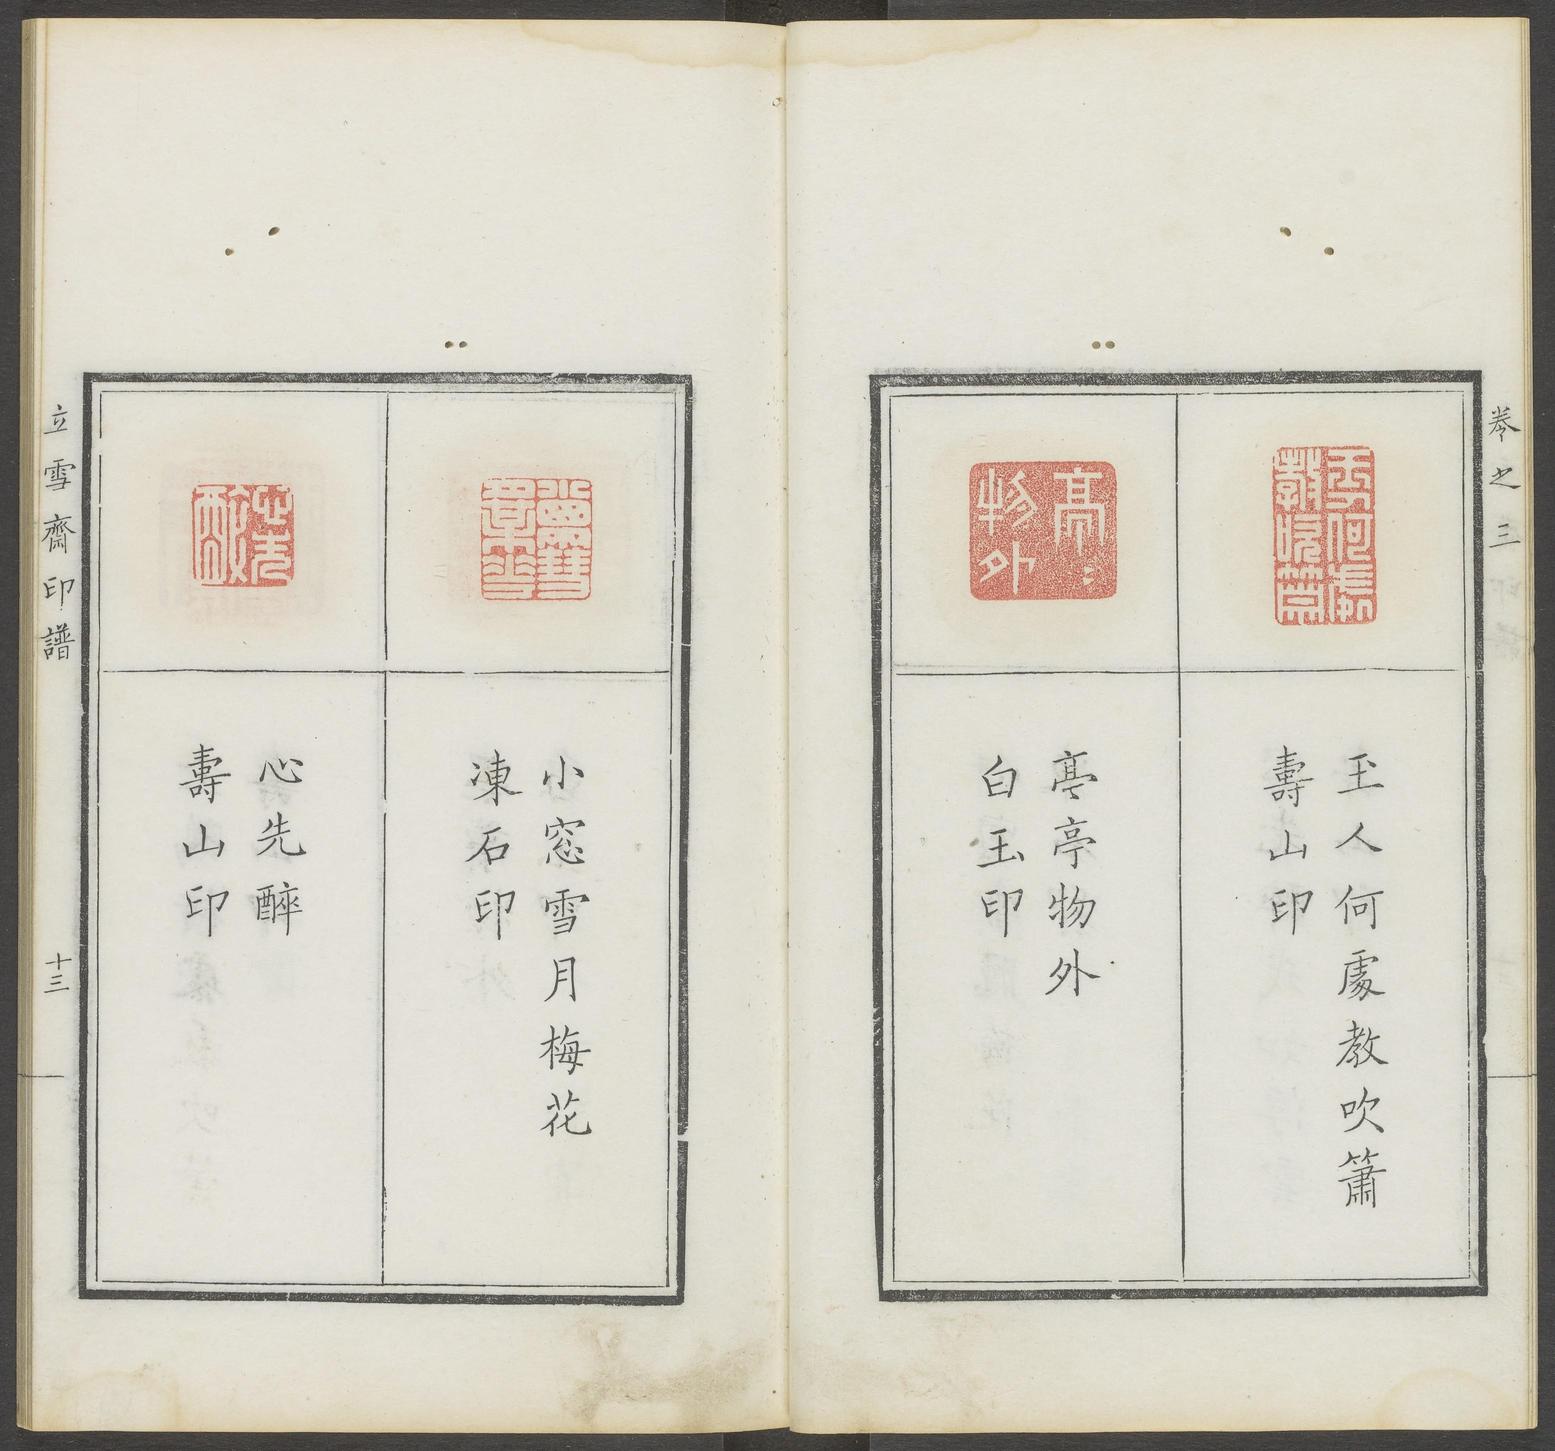 卷之三
玉人何處教吹簫
壽山印
亭亭物外
白玉印
亭〻物外
小窓雪月梅花
凍石印
心先醉
壽山印
心先醉
立雪齋印譜
十三